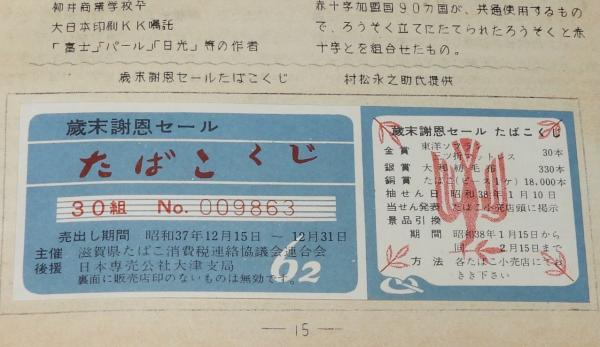 柳井商業学校卒
大日本印刷KK嘱託
「富士」「パール」「日光」等の作者
赤十字加盟国90カ国が、共通使用するもの
で、ろうそく立てにたてられたろうそくと赤
十字とを組合せたもの。
歳末謝恩セールたばこくじ
村松永之助氏提供
歳末謝恩セール
たばこくじ
30組 No. 009863
売出し期間 昭和37年12月15日 〜 12月31日
主催 滋賀県たばこ消費税連絡協議会連合会
後援 日本専売公社大津支局
裏面に販売店印のないものは無効です。
02
歳末謝恩セール たばこくじ
金賞 東洋ソフラン
三ツ折マットレス 30本
銀賞 大和紡毛布 330本
銅賞 たばこ(ピース1ケ) 18,000本
抽せん日 昭和38年1月10日
当せん発表 たばこ小売店頭に掲示
景品引換
期間 昭和38年1月15日から
同 2月15日まで
方法 各たばこ小売店にてお
きき下さい
—15—